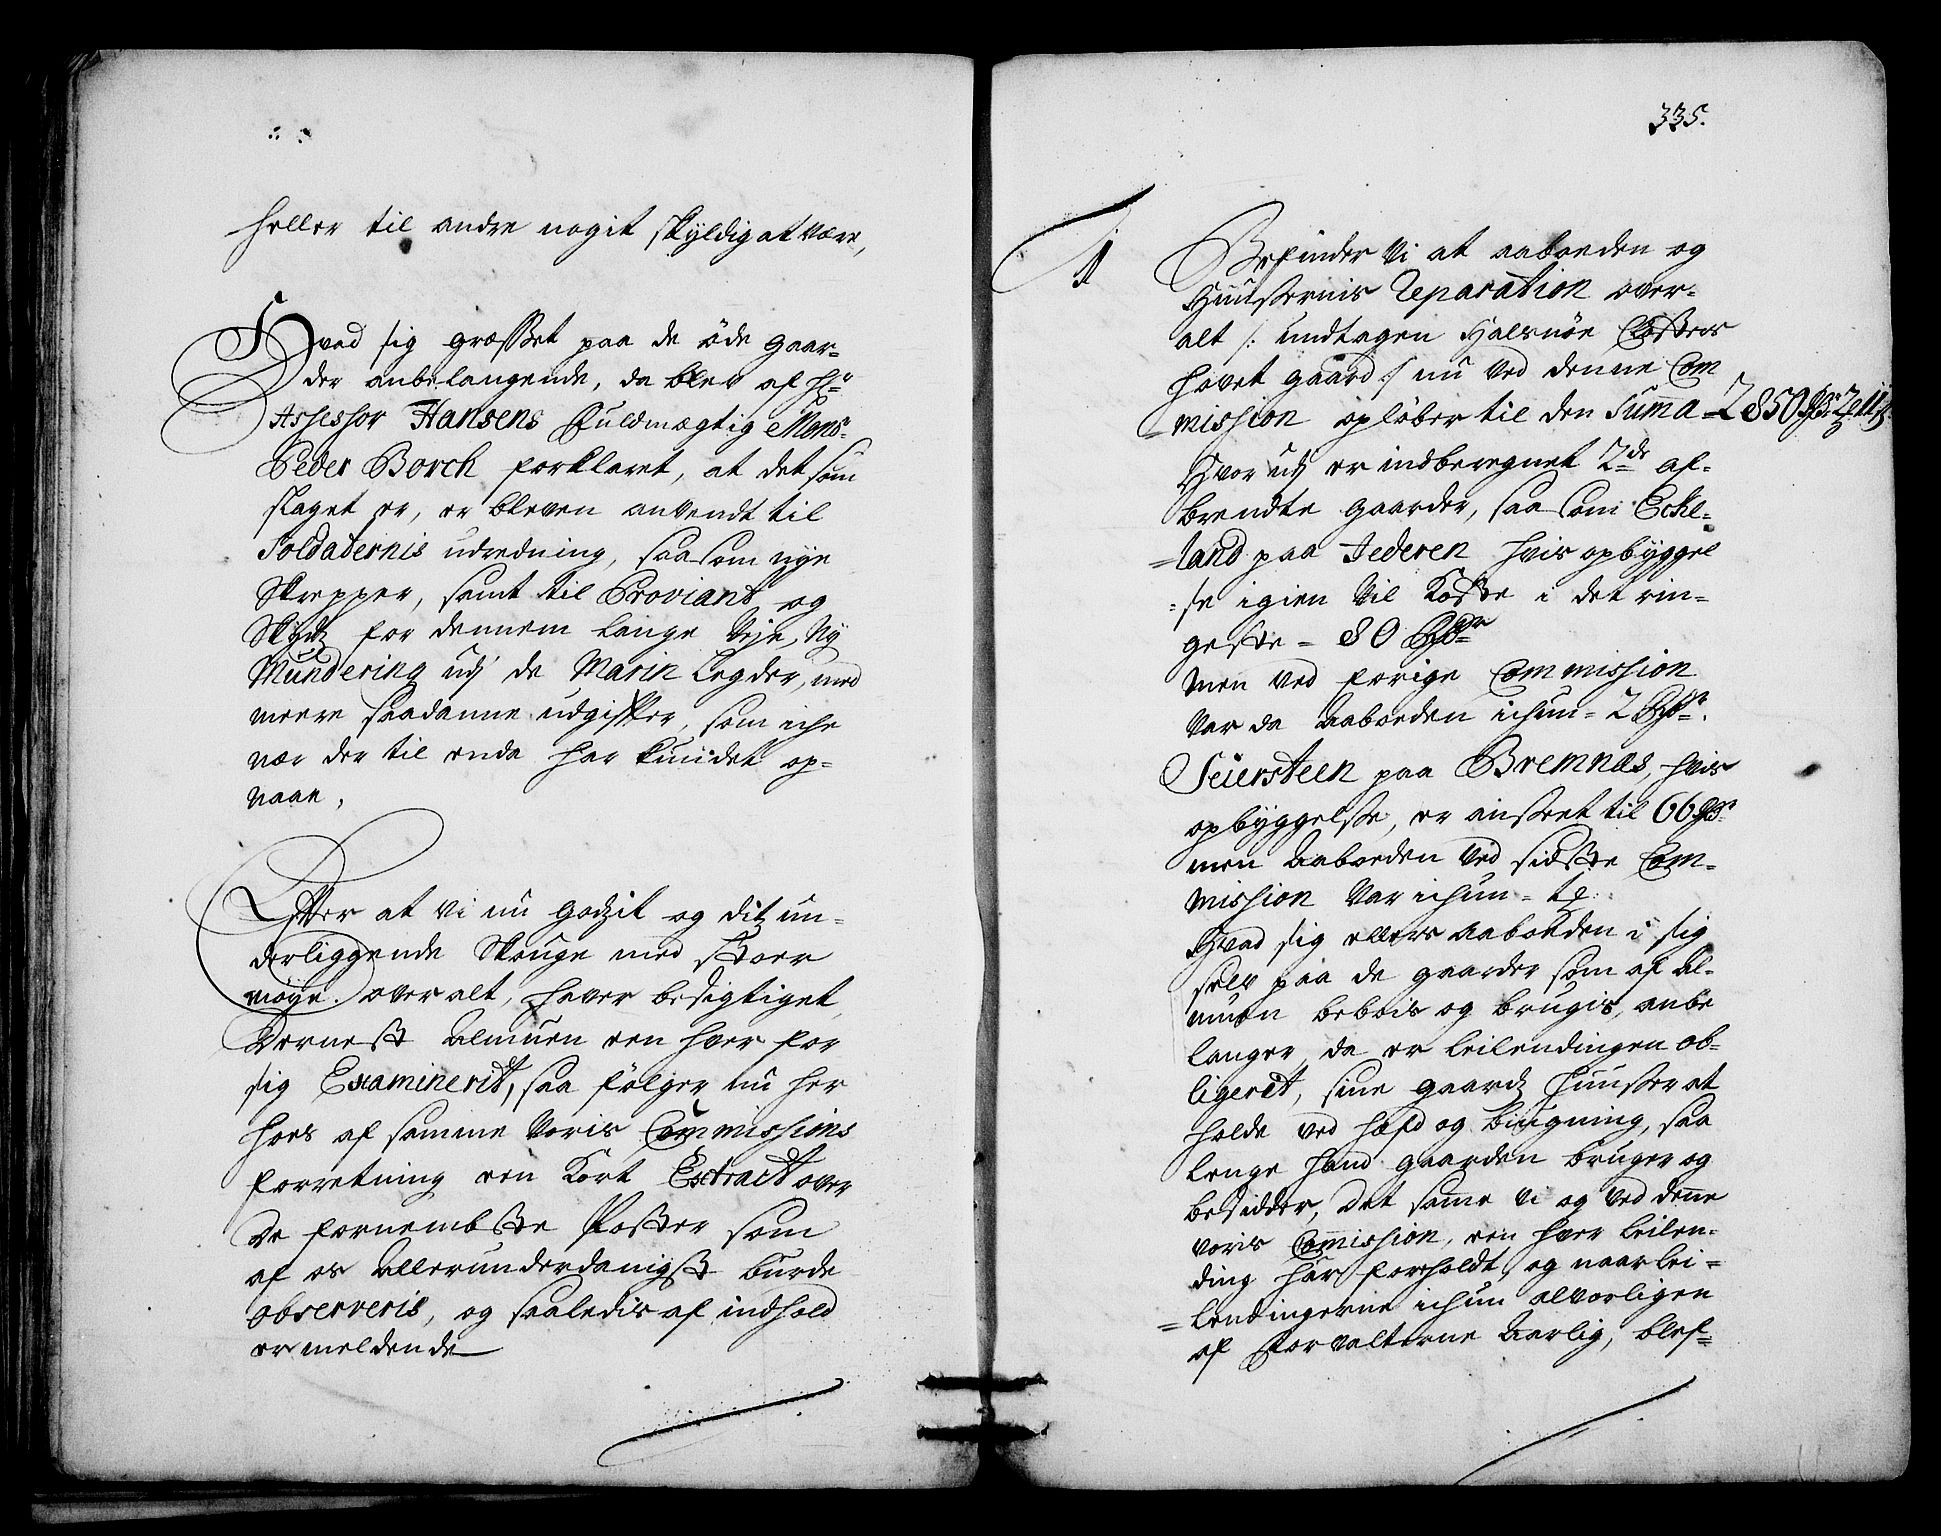 heller til andre nogit skyldig at være,
Hvad sig græsset paa de öde gaar-
der anbelangende, da blev af Hr
Assessor Hansens Fuldmægtig Monsr
Peder Borch forklaret, at det som
slaget er, er bleven anvendt til
Soldaternis udredning, saasom nye
Skrepper, samt til Proviant og
Skydtz for dennem lange Veje, Ny
Mundering udj de Marin Legder, med
meere saadanne udgifter, som iche
nær der til enda har kundet op-
naae,
Efter at vi nu godzit og ditz un-
derliggende Skouge med stoer
möye over alt, haver besigtiget,
Dernest Almuen een hver for
sig Examinerit, saa fölger nu her
hoes af samme voris Commissions
forretning een Kort Extract over
De fornembste Poster som
af os Allerunderdanigst burde
observeris, og saaledis af indhold
er meldende
335.
1
Befinder Vi at aaboeden og
Huussernis Reparation over-
alt /: undtagen Halsnöe Closters
hovet gaard :/ nu ved denne Com
-mission opløber til den Summa - 2850 Rdr
Hvor udj er indberegnet 2de af-
brendte gaarder, saa som Eche-
-land paa Jederen hvis opbyggel
-se igien vil Koste i det rin-
geste - 80 Rdr
Men ved forige Commission
var da Aaboeden ichun - 2 Rdr.
Seiersteen paa Bremnæs, hvis
opbyggelse, er ansseet til 66 Rdr
men Aaboeden ved sidste Com-
mission var ichun -
Hvad sig ellers Aaboeden i sig
selv paa de gaarder som af Al-
muen beboes og brugis, anbe
langer, da er leilendingen ob-
ligerit, sine gaardz Huusser at
holde ved hæfd og bÿgning, saa
lenge hand gaarden bruger og
besidder, Det samme vi og ved denne
voris Commission, een hver leilen-
ding har foreholdt, og naar lei-
-lendingerne ichun alvorligen
af Forvalterne Aarlig, blef-